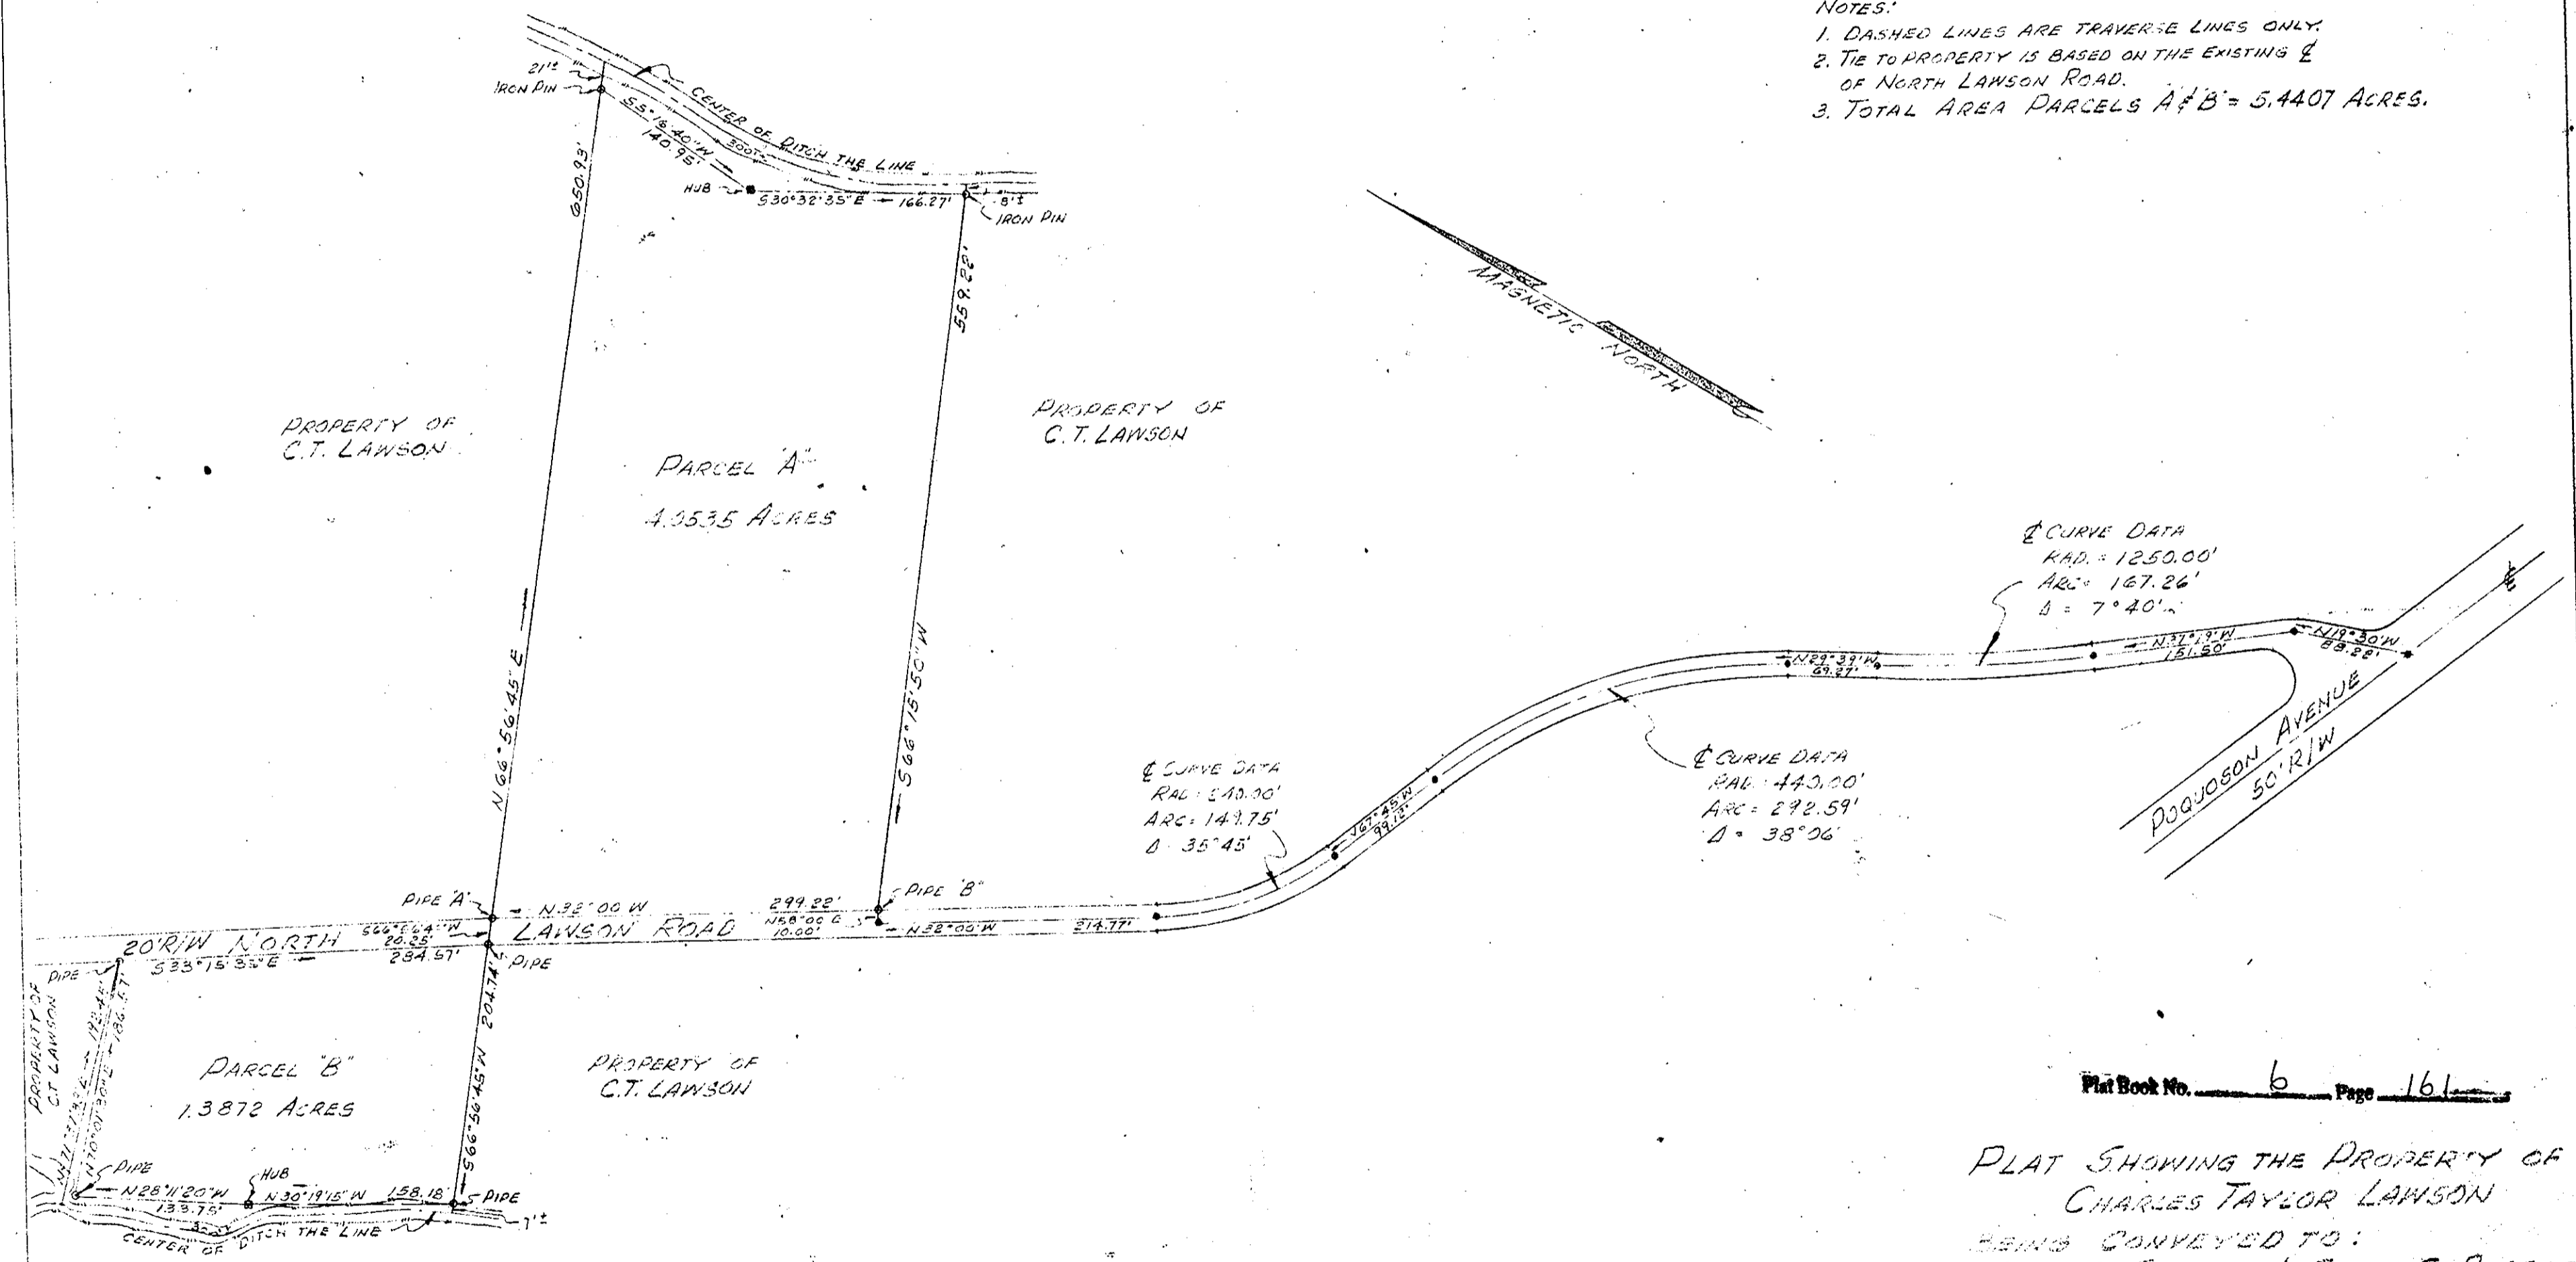 NOTES:
1. DASHED LINES ARE TRAVERSE LINES ONLY.
2. TIE TO PROPERTY IS BASED ON THE EXISTING ℄
OF NORTH LAWSON ROAD.
3. TOTAL AREA PARCELS 'A' & 'B' = 5.4407 ACRES.
21'±
IRON PIN
S5°16'40"W
140.95'
CENTER OF DITCH THE LINE
HUB
S30°32'35"E
166.27'
8'±
IRON PIN
650.93'
559.22'
MAGNETIC NORTH
PROPERTY OF
C.T. LAWSON
PARCEL "A"
4.0535 ACRES
PROPERTY OF
C.T. LAWSON
N66°56'45"E
S66°15'50"W
℄ CURVE DATA
RAD. = 1250.00'
ARC = 167.26'
Δ = 7°40'
N31°19'W
151.50'
N19°30'W
88.28'
N29°39'W
69.27'
POQUOSON AVENUE
50' R/W
℄
℄ CURVE DATA
RAD. = 440.00'
ARC = 292.59'
Δ = 38°06'
℄ CURVE DATA
ARC = 149.75'
Δ 35°45'
67°45'W
99.12'
PIPE 'A'
N32°00'W
299.22'
PIPE "B"
N58°00'E
10.00'
N32°00'W
214.77'
20' R/W NORTH LAWSON ROAD
20.25'
S33°15'35"E
284.57'
PIPE
PIPE
PROPERTY OF
C.T. LAWSON
N70°01'30"E
S66°56'45"W 204.74'
PARCEL "B"
1.3872 ACRES
PROPERTY OF
C.T. LAWSON
PIPE
N28°11'20"W
133.75'
HUB
N30°19'15"W
158.18'
PIPE
7'±
CENTER OF DITCH THE LINE
Plat Book No. 6 Page 161
PLAT SHOWING THE PROPERTY OF
CHARLES TAYLOR LAWSON
BEING CONVEYED TO: